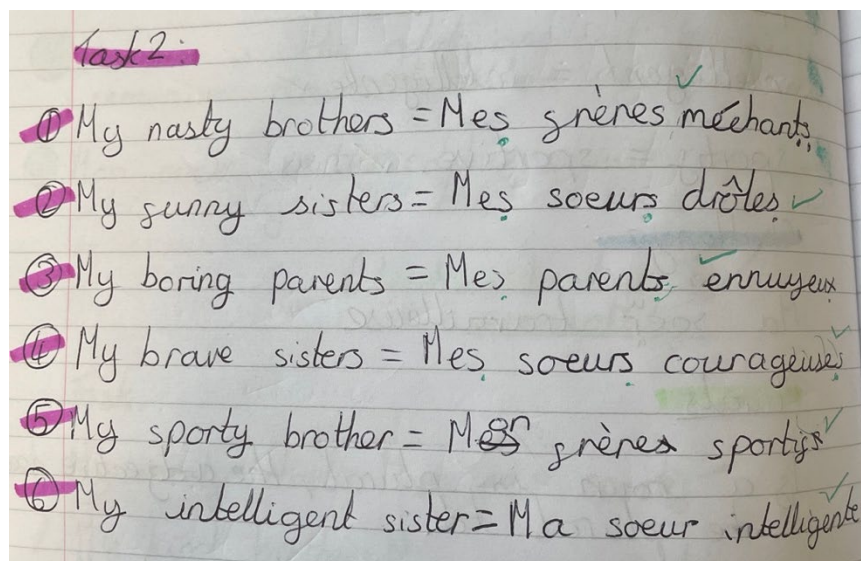 Task 2:
① My nasty brothers = Mes frères méchants
② My funny sisters = Mes soeurs drôles
③ My boring parents = Mes parents ennuyeux
④ My brave sisters = Mes soeurs courageuses
⑤ My sporty brother = Mon frère sportif
⑥ My intelligent sister = Ma soeur intelligente